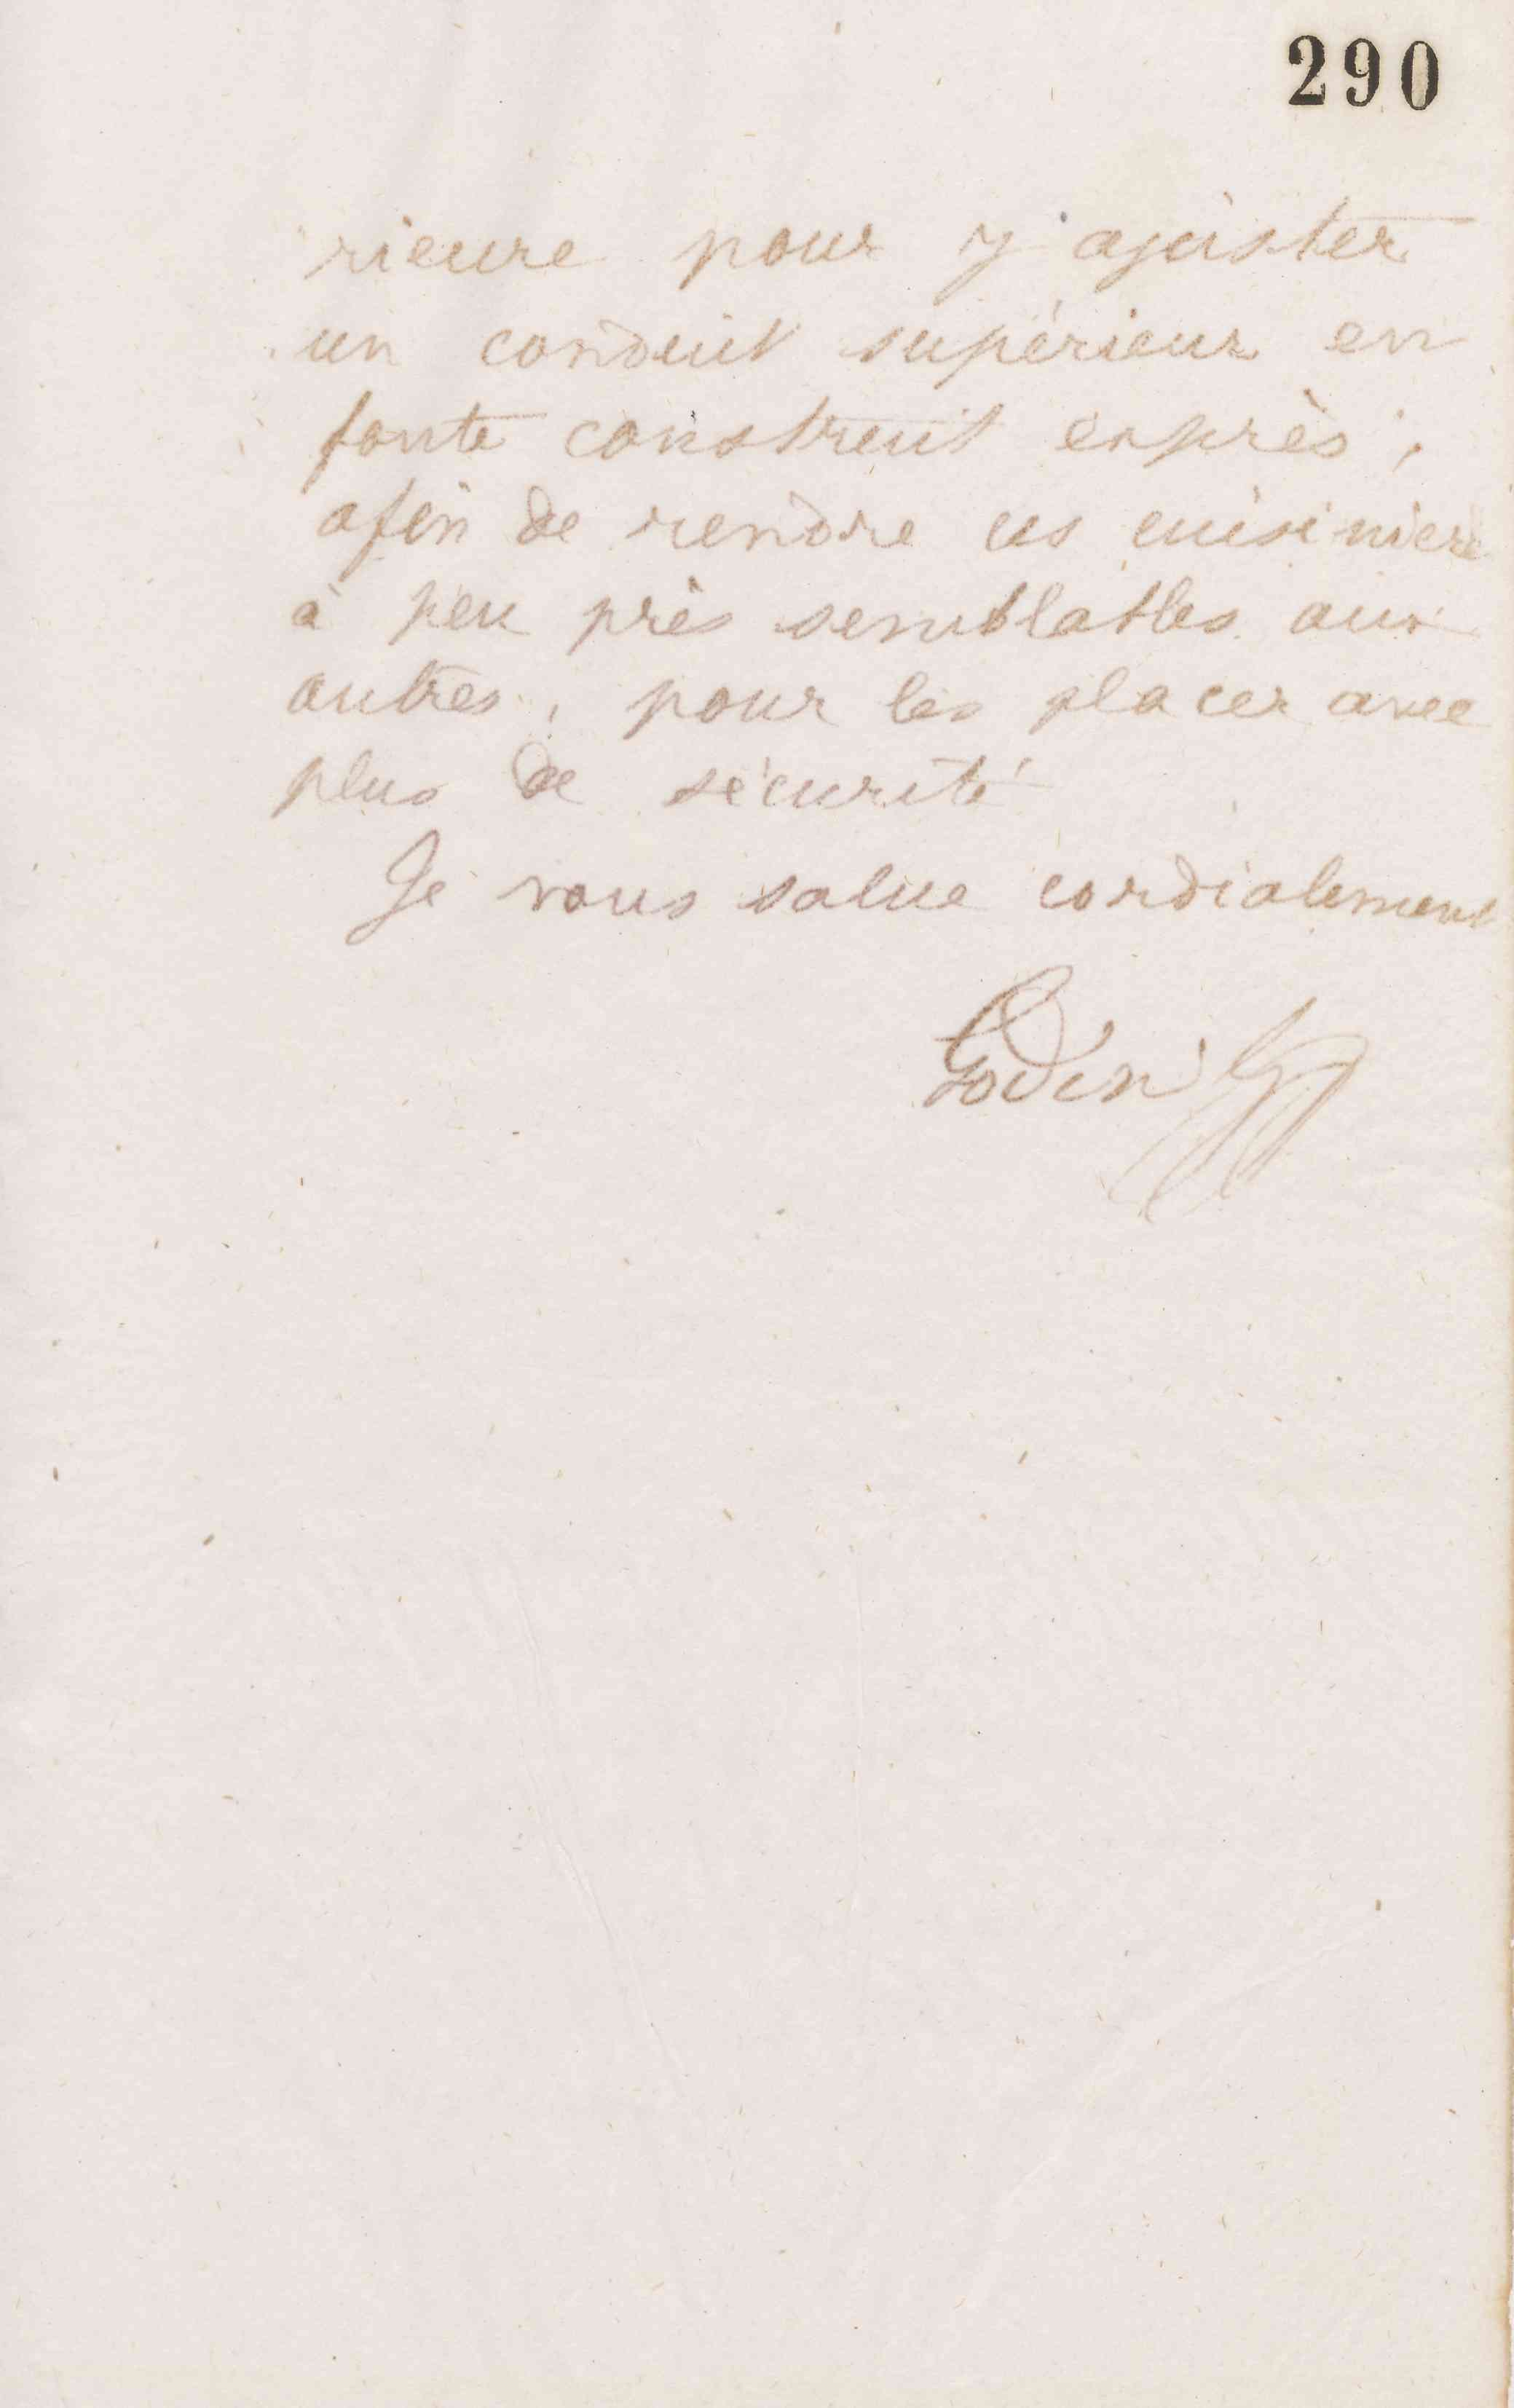 290
rieure pour y ajuster
un conduit supérieur en
fonte construit exprès,
afin de rendre ces cuisinières
à peu près semblables aux
autres, pour les placer avec
plus de sécurité
Je vous salue cordialement
Godin